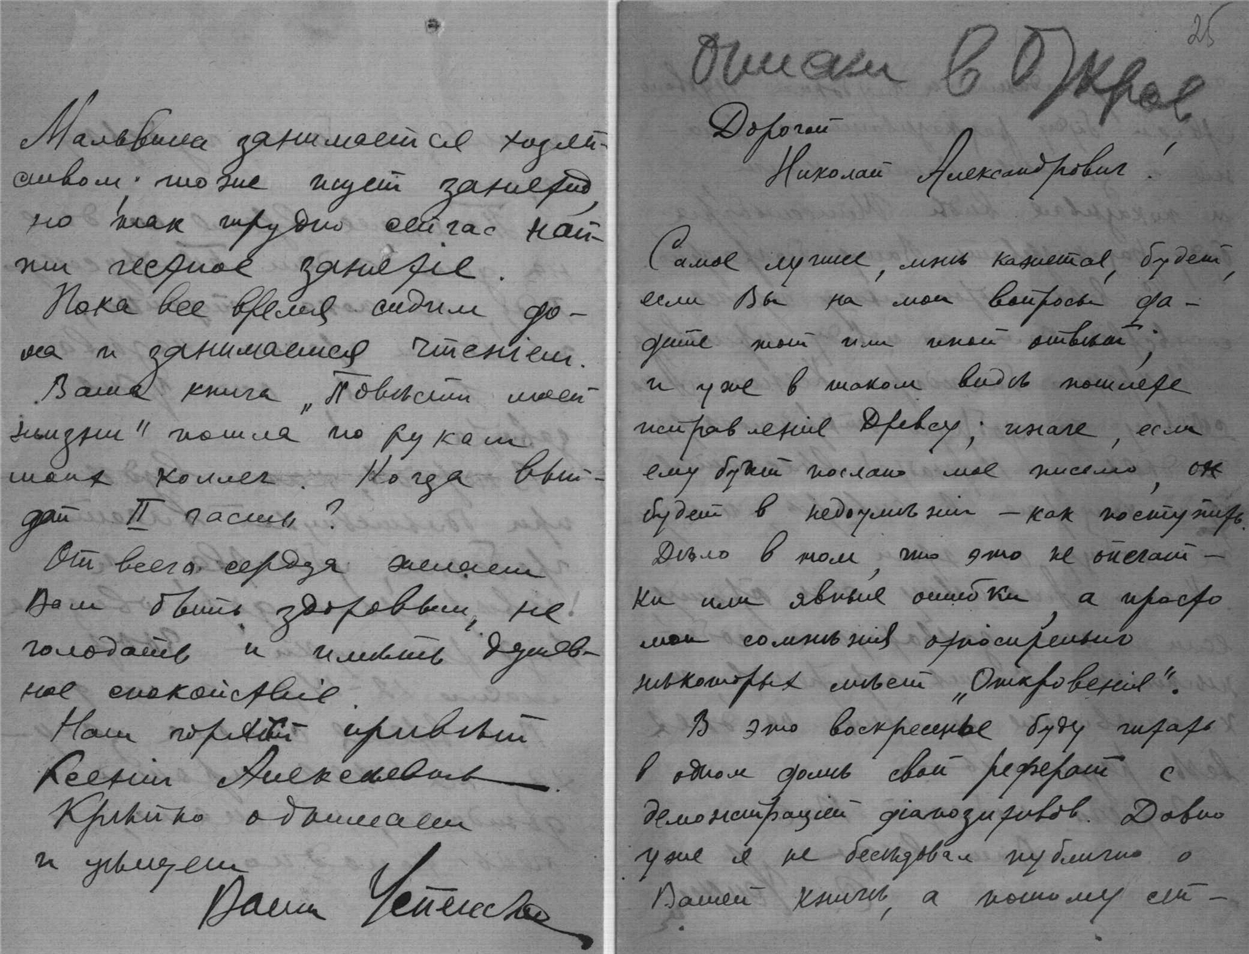 Мальвина занимается хозяй-
ством; тоже ищет занятiй,
но так трудно сейчас най-
ти честное занятiе.
Пока все время сидим до-
ма и занимаемся чтенiем.
Ваша книга „Повѣсти моей
жизни" пошла по рукам
моих коллег. Когда вый-
дет II часть?
От всего сердца желаем
Вам быть здоровым, не
голодать и имѣть душев-
ное спокойствiе.
Наш горячiй привѣт
Ксенiи Алексѣевнѣ.
Крѣпко обнимаем
и цѣлуем
Ваши Успенскiе
25
в
Дорогой
Николай Александрович!
Самое лучшее, мнѣ кажется, будет,
если Вы на мои вопросы да-
дите тот или иной отвѣт;
и уже в таком видѣ пошлете
исправленiе Древсу; иначе, если
ему будет послано мое письмо, он
будет в недоумѣнiи – как поступить.
Дѣло в том, что это не опечат-
ки или явные ошибки, а просто
мои сомнѣнiя относительно
нѣкоторых мѣст „Откровенiя".
В это воскресенье буду читать
в одном домѣ свой реферат с
демонстрацiей дiапозитивов. Давно
уже я не бесѣдовал публично о
Вашей книгѣ, а потому